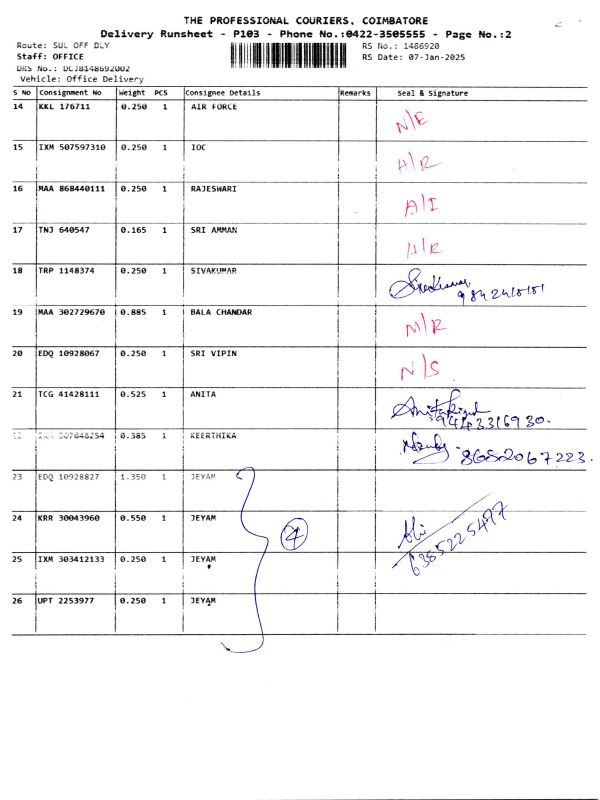 THE PROFESSIONAL COURIERS, COIMBATORE
Delivery Runsheet - P103 - Phone No.:0422-3505555 - Page No.:2
Route: SUL OFF DLY RS No.: 1486920
Staff: OFFICE RS Date: 07-Jan-2025
DRS No.: DCJB148692002
Vehicle: Office Delivery
S No Consignment No Weight PCS Consignee Details Remarks Seal & Signature
14 KKL 176711 0.250 1 AIR FORCE N/E
15 IXM 507597310 0.250 1 IOC H/R
16 MAA 868440111 0.250 1 RAJESWARI A/I
17 TNJ 640547 0.165 1 SRI AMMAN H/R
18 TRP 1148374 0.250 1 SIVAKUMAR
19 MAA 302729670 0.885 1 BALA CHANDAR M/R
20 EDQ 10928067 0.250 1 SRI VIPIN N/S
21 TCG 41428111 0.525 1 ANITA 9443316930.
0.385 1 KEERTHIKA
23 EDQ 10928827 1.350 1 JEYAM
24 KRR 30043960 0.550 1 JEYAM 4 6385225477
25 IXM 303412133 0.250 1 JEYAM
26 UPT 2253977 0.250 1 JEYAM